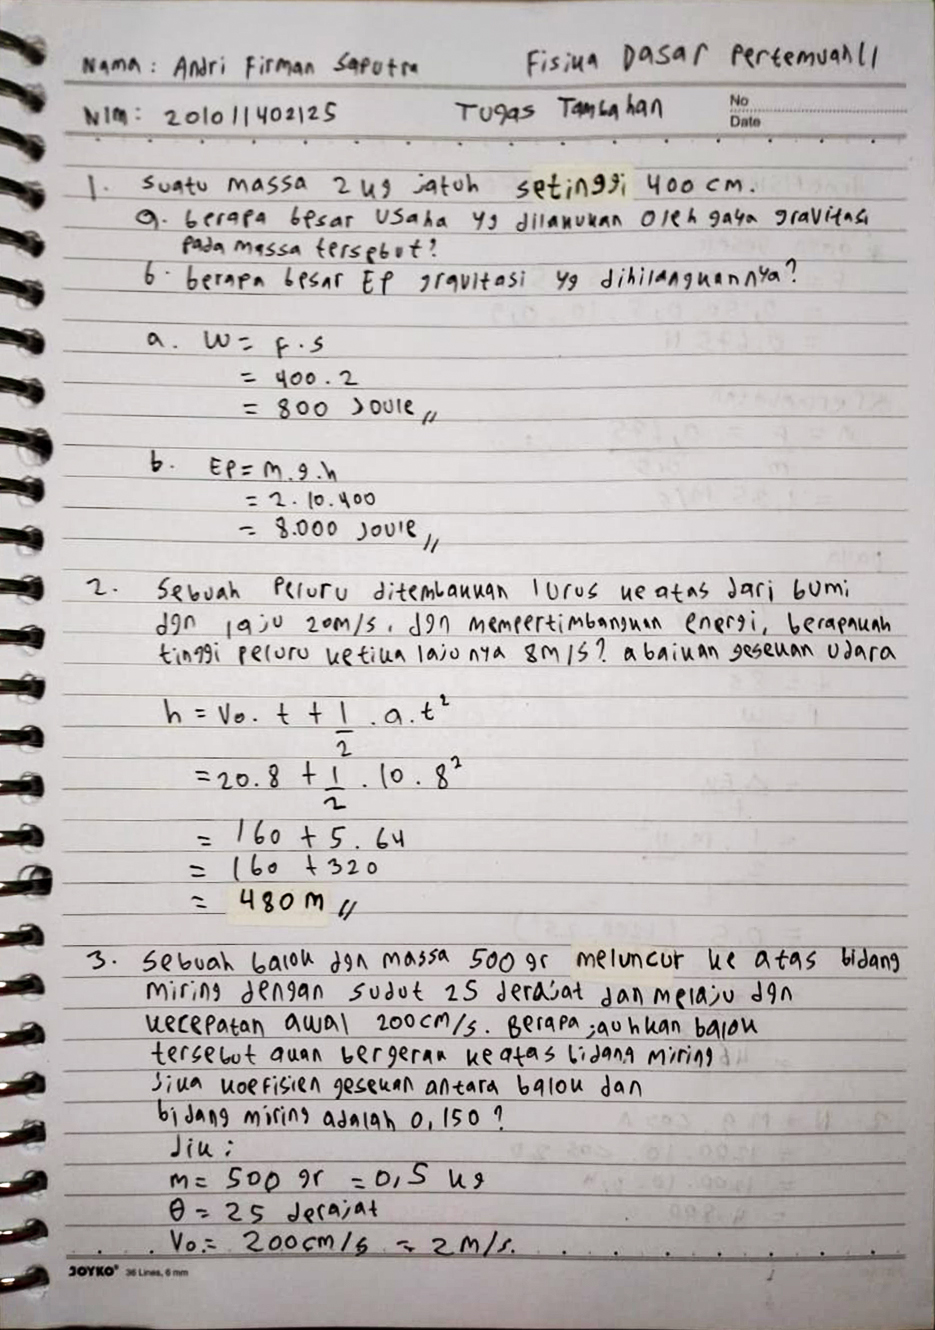 Nama : Andri Firman Saputra
Fisika Dasar Pertemuan 11
NIM : 201011402125
Tugas Tambahan
No
Date
1. Suatu massa 2 kg jatuh setinggi 400 cm.
a. berapa besar usaha yg dilakukan oleh gaya gravitasi
pada massa tersebut?
b. berapa besar EP gravitasi yg dihilangkannya?
a. W = F . s
= 400 . 2
= 800 Joule //
b. EP = m . g . h
= 2 . 10 . 400
= 8.000 Joule //
2. Sebuah Peluru ditembakkan lurus ke atas dari bumi
dgn laju 20m/s. dgn mempertimbangkan energi, berapakah
tinggi peluru ketika lajunya 8m/s? abaikan gesekan udara
h = Vo . t + 1/2 . a . t²
= 20.8 + 1/2 . 10 . 8²
= 160 + 5 . 64
= 160 + 320
= 480 m //
3. Sebuah balok dgn massa 500 gr meluncur ke atas bidang
miring dengan sudut 25 derajat dan melaju dgn
kecepatan awal 200cm/s. Berapa jauhkan balok
tersebut akan bergerak ke atas bidang miring
Jika koefisien gesekan antara balok dan
bidang miring adalah 0,150 ?
Dik :
m = 500 gr = 0,5 kg
θ = 25 derajat
Vo = 200cm/s = 2 m/s.
JOYKO® 36 Lines, 6 mm